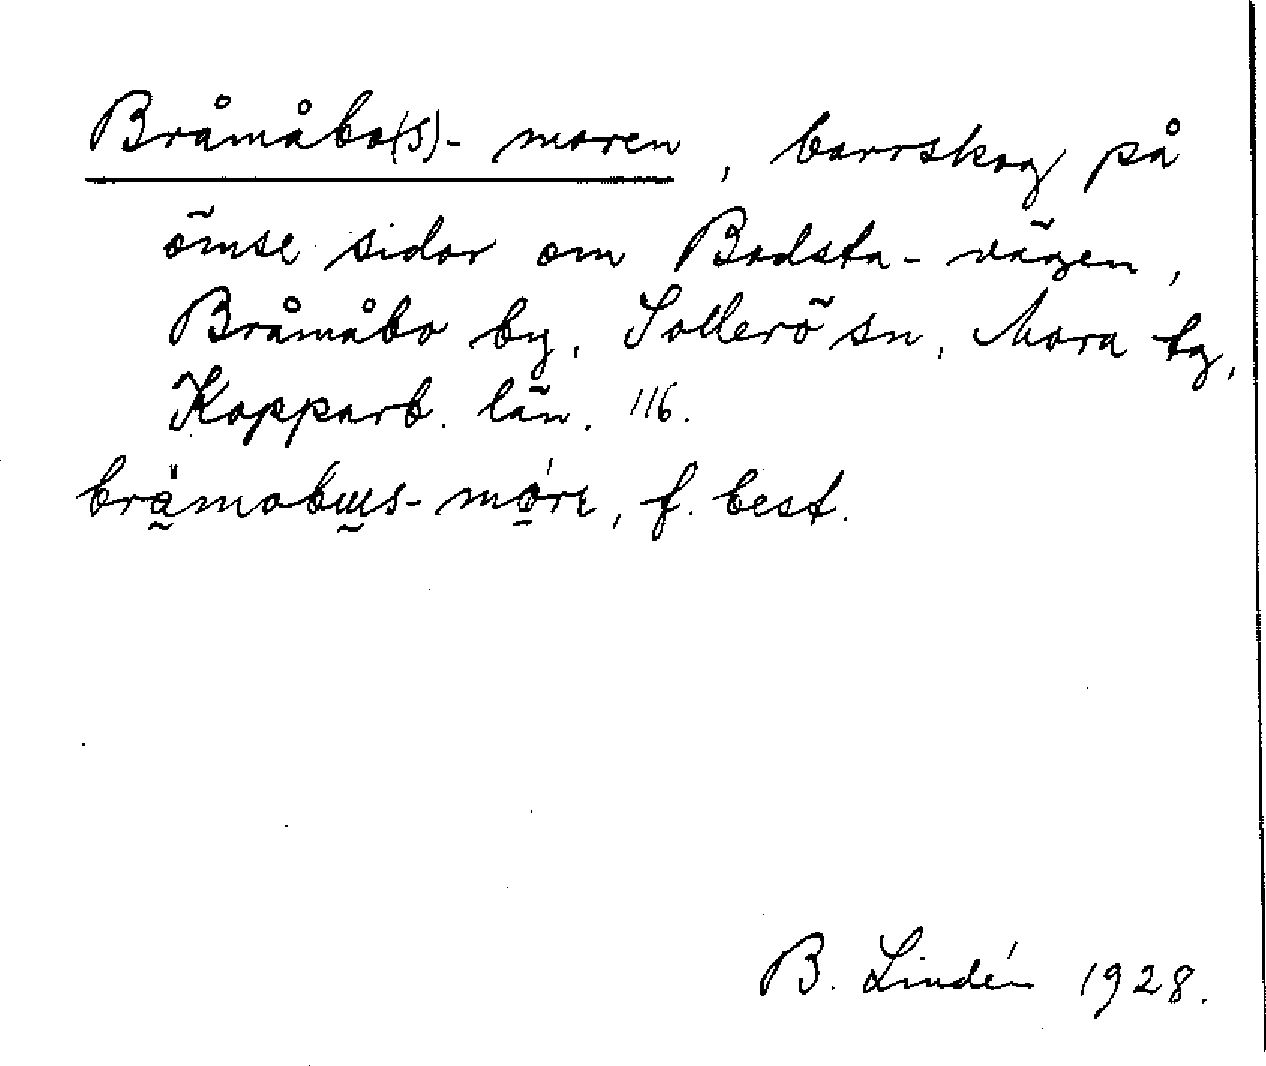 Bråmåbo(s)-moren, barrskog på
ömse sidor om Bodsta-vägen,
Bråmåbo by, Sollerö sn, Mora tg,
Kopparb. län. 116.
f. best.
B. Lindén 1928.